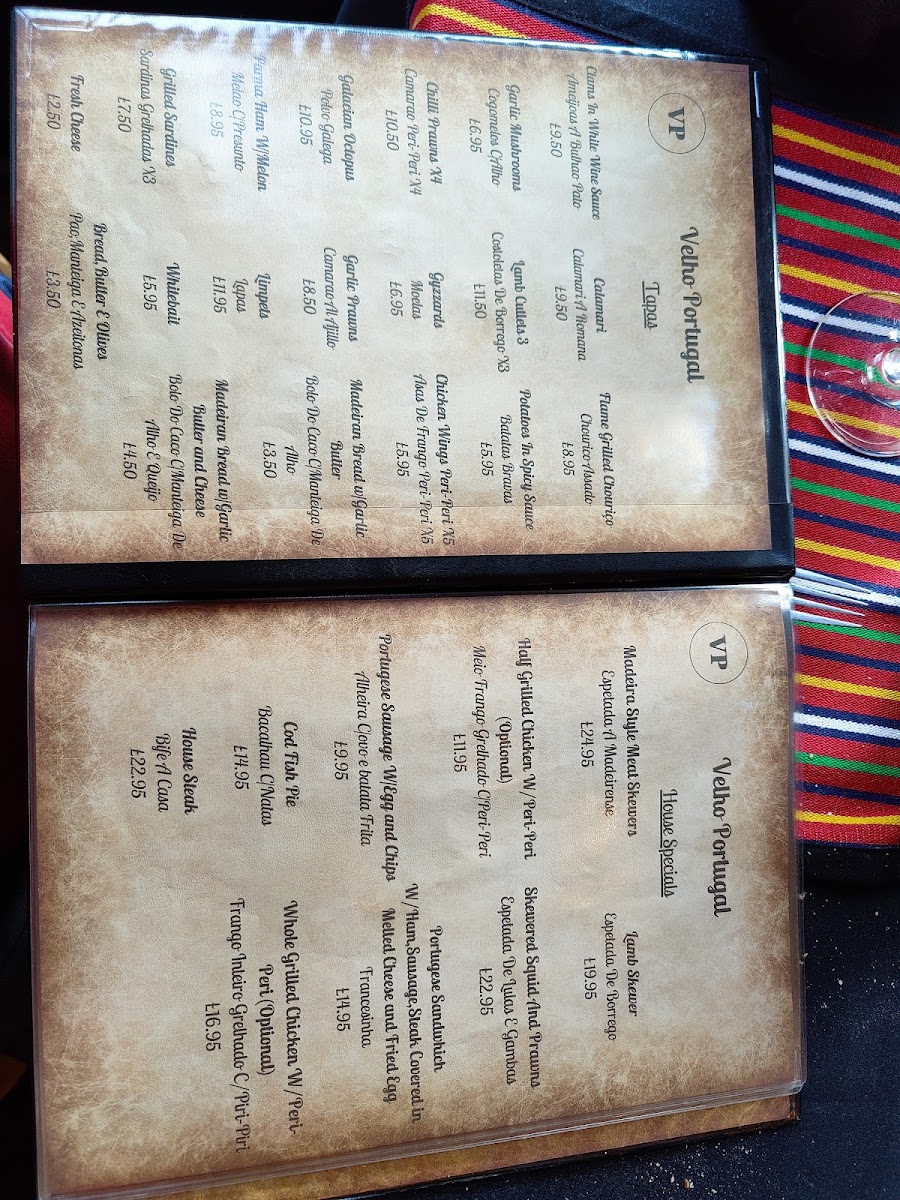 VP
Velho Portugal
Tapas
Clams In White Wine Sauce
Ameijoas A Bulhao Pato
£9.50
Calamari
Calamari A Romana
£9.50
Flame Grilled Chouriço
Chouriço Assado
£8.95
Garlic Mushrooms
Cogomelos C/Alho
£6.95
Lamb Cutlets 3
Costoletas De Borrego X3
£11.50
Potatoes In Spicy Sauce
Batatas Bravas
£5.95
Chilli Prawns X4
Camarao Peri-Peri X4
£10.50
Gyzzards
Moelas
£6.95
Chicken Wings Peri-Peri X5
Asas De Frango Peri-Peri X5
£5.95
Galacian Octopus
Polvo Galega
£10.95
Garlic Prawns
Camarao Al Ajillo
£8.50
Madeiran Bread w/Garlic
Butter
Bolo Do Caco C/Manteiga De
Alho
£3.50
Parma Ham W/Melon
Melao C/Presunto
£8.95
Limpets
Lapas
£11.95
Madeiran Bread w/Garlic
Butter and Cheese
Bolo Do Caco C/Manteiga De
Alho E Queijo
£4.50
Grilled Sardines
Sardinas Grelhadas X3
£7.50
Whitebait
£5.95
Fresh Cheese
£2.50
Bread, Butter E Olives
Pao,Manteiga E Azeitonas
£3.50
VP
Velho Portugal
House Specials
Madeira Style Meat Skewers
Espetada A Madeirense
£24.95
Lamb Skewer
Espetada De Borrego
£19.95
Half Grilled Chicken W/Peri-Peri
(Optional)
Meio Frango Grelhado C/Peri-Peri
£11.95
Skewered Squid And Prawns
Espetada De Lulas E Gambas
£22.95
Portugese Sausage W/Egg and Chips
Alheira C/ovo e batata Frita
£9.95
Portugese Sandwhich
W/Ham,Sausage,Steak Covered in
Melted Cheese and Fried Egg
Francesinha
£14.95
Cod Fish Pie
Bacalhau C/Natas
£14.95
Whole Grilled Chicken W/Peri-
Peri (Optional)
Frango Inteiro Grelhado C/Piri-Piri
£16.95
House Steak
Bife A Casa
£22.95